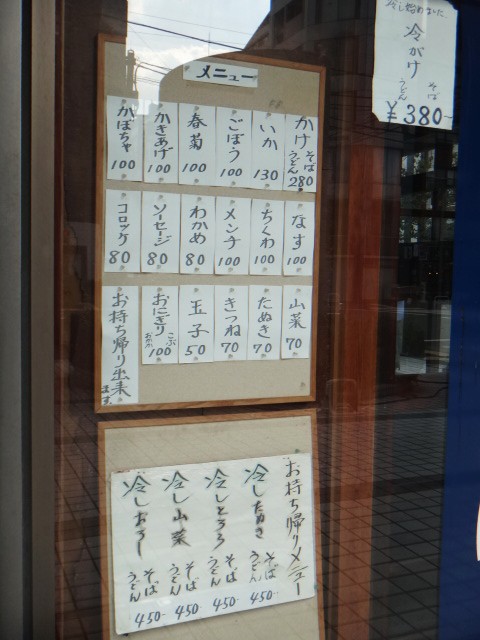 冷し始めました
冷がけ
そば
うどん
¥380-
メニュー
かけ
そば
うどん
280
いか
130
ごぼう
100
春菊
100
かきあげ
100
かぼちゃ
100
なす
100
ちくわ
100
メンチ
100
わかめ
80
ソーセージ
80
コロッケ
80
山菜
70
たぬき
70
きつね
70
玉子
50
おにぎり
こぶ
おかか
100
お持ち帰り出来ます
お持ち帰りメニュー
冷したぬき
そば
うどん
450-
冷しとろろ
そば
うどん
450-
冷し山菜
そば
うどん
450-
冷しおろし
そば
うどん
450-